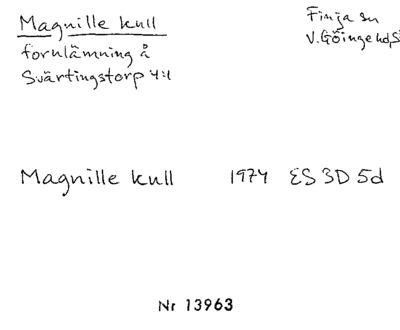 Magnille kull
fornlämning å
Svärtingstorp 4:1
Finja sn
V.Göinge hd,S
Magnille kull 1974 ES 3D 5d
Nr 13963